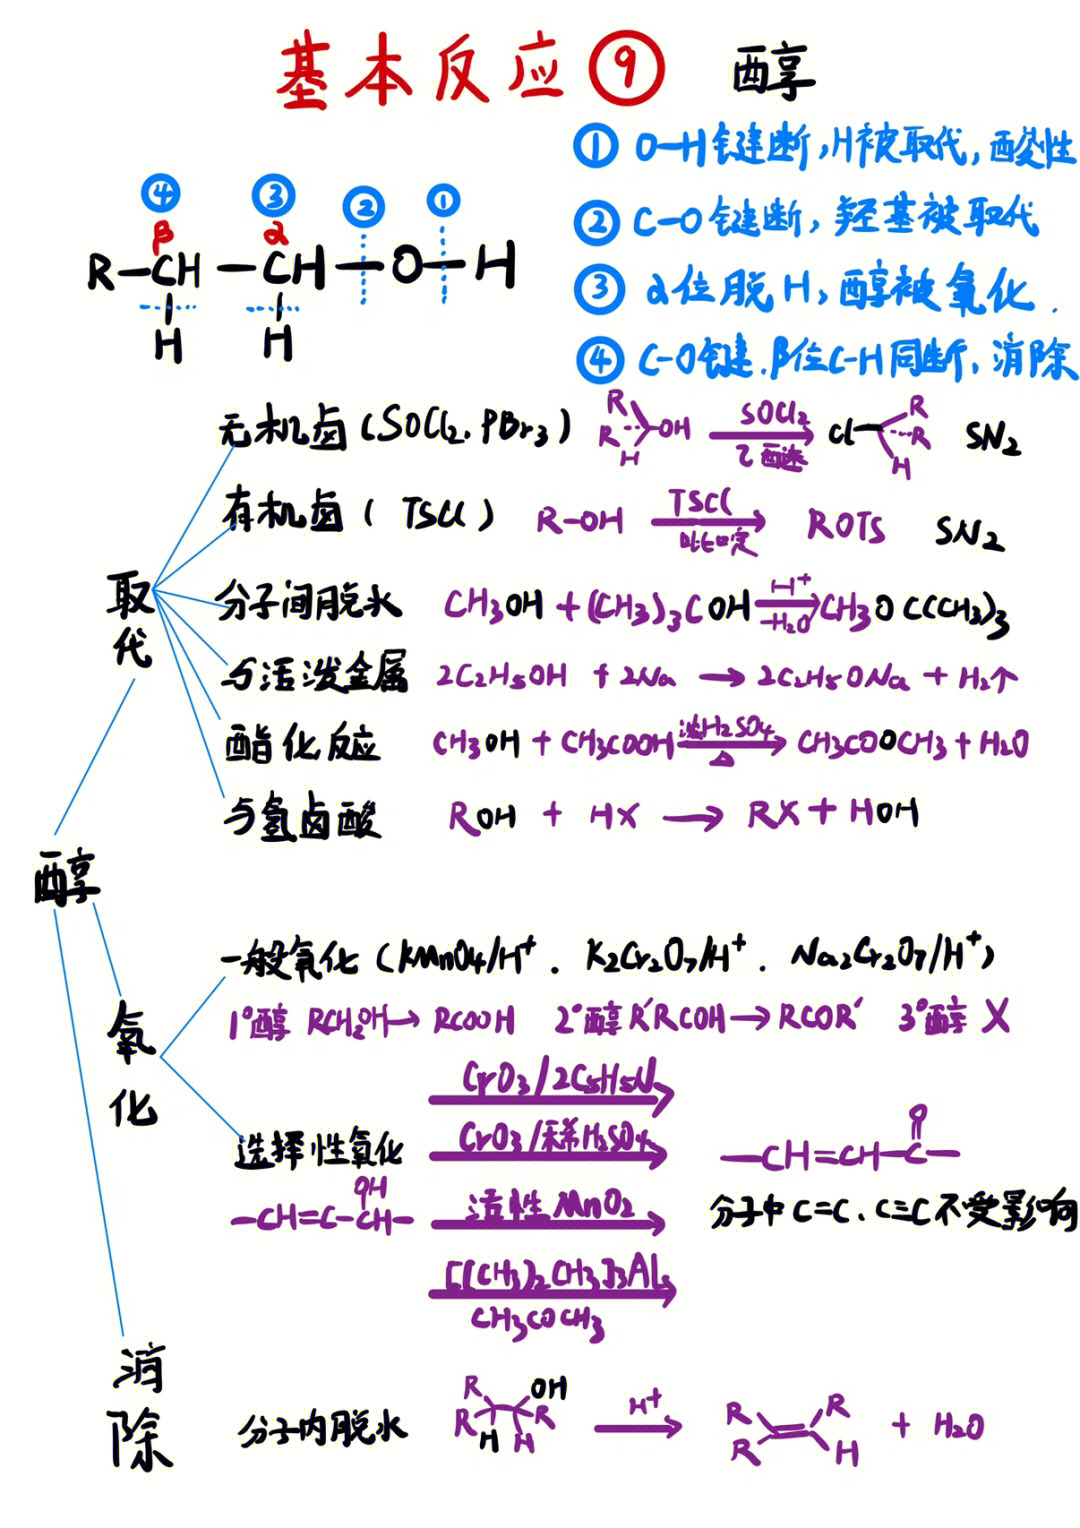 基本反应⑨ 醇
① O-H键断,H被取代,酸性
② C-O键断,羟基被取代
③ α位脱H,醇被氧化.
④ C-O键.β位C-H同断,消除
④ ③ ② ①
β α
R-CH-CH-O-H
H H
无机卤(SOCl2.PBr3) R R H OH SOCl2 乙醚 Cl R R H SN2
有机卤(TSCl) R-OH TSCl 吡啶 ROTS SN2
取代
分子间脱水 CH3OH+(CH3)3COH H+ -H2O CH3OC(CH3)3
与活泼金属 2C2H5OH+2Na→2C2H5ONa+H2↑
酯化反应 CH3OH+CH3COOH 浓H2SO4 △ → CH3COOCH3+H2O
与氢卤酸 ROH+HX→RX+HOH
醇
一般氧化(KMnO4/H+. K2Cr2O7/H+. Na2Cr2O7/H+)
1°醇 RCH2OH→RCOOH 2°醇 R'RCOH→RCOR' 3°醇 X
氧化
CrO3/2C5H5N
选择性氧化 CrO3/稀H2SO4
OH
-CH=C-CH-
活性MnO2
[(CH3)2CH3]3Al
CH3COCH3
O
-CH=CH-C-
分子中C=C.C≡C不受影响
消除
分子内脱水 R R H OH R H H+ → R R R H + H2O